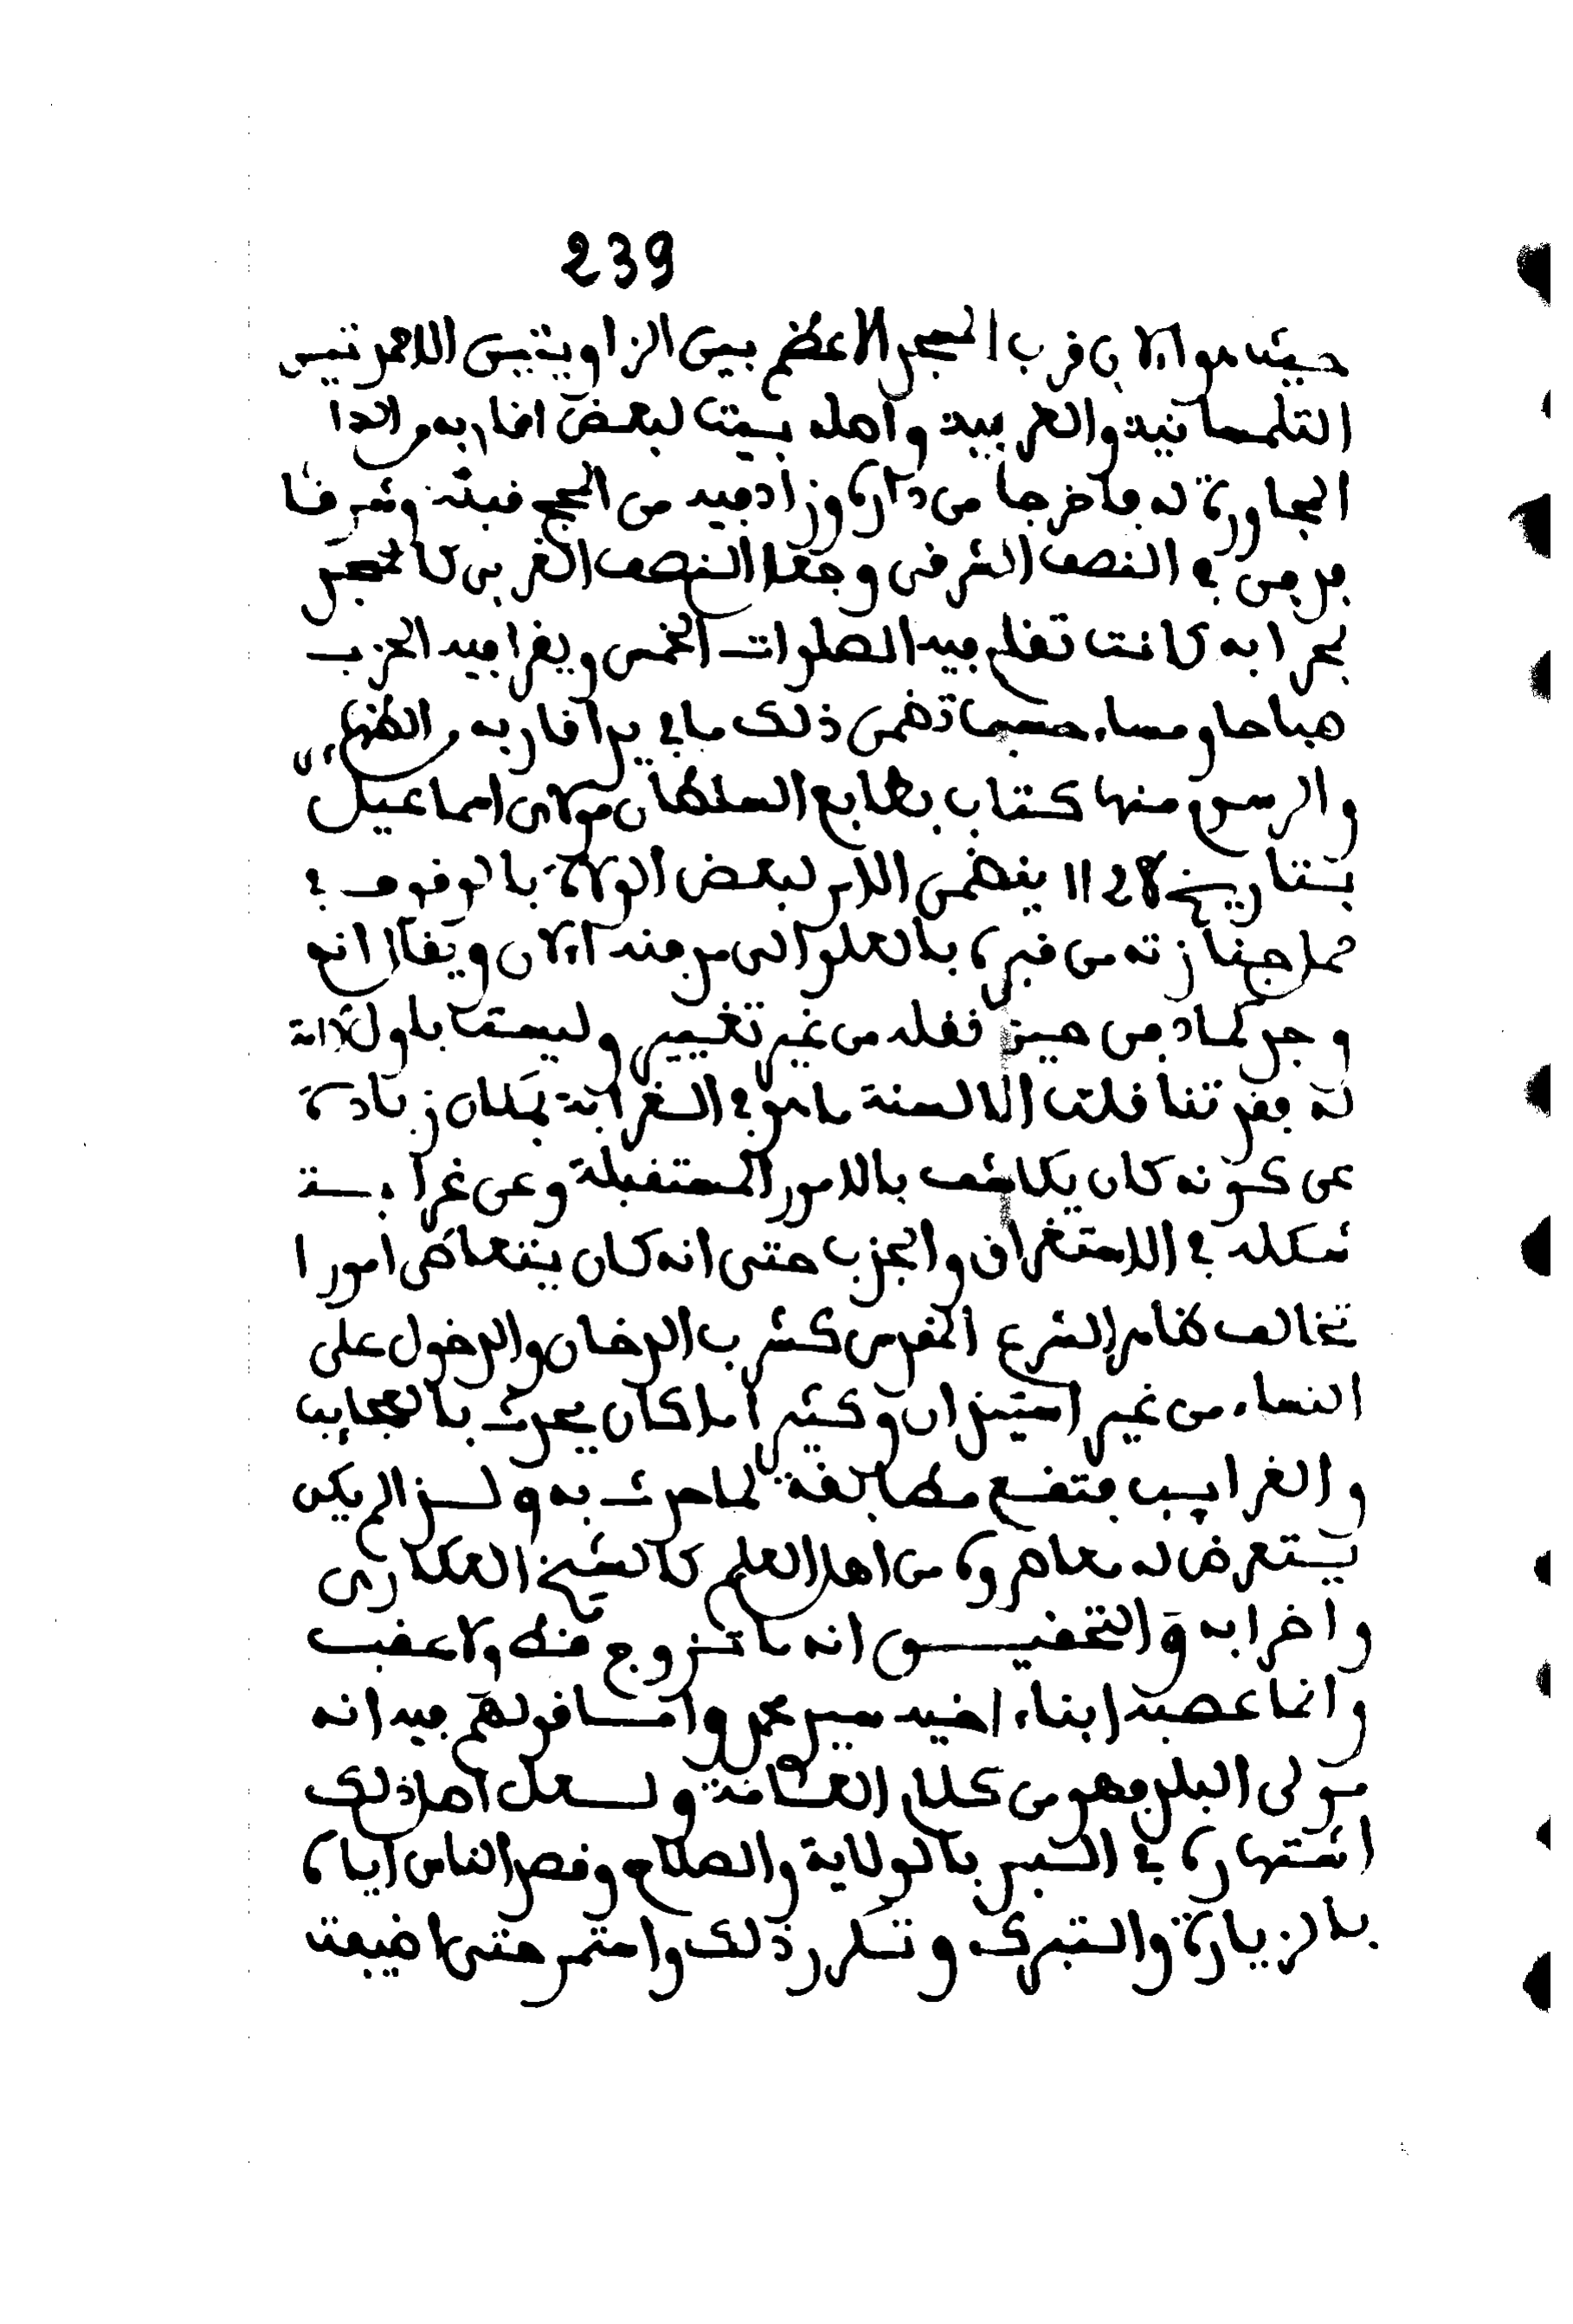 239
حيث هو الان قرب المسجد الاعظم بين الزاويتين الاحمدتين
التلمسانية والغربية واصله بيت لبعض اقاربه من الدار
المجاورة له فاخرجا من داره وزاد فيه من المحج قبلة وشرقا
فدفن في النصف الشرقي وجعل النصف الغربي كالمسجد
بمحرابه كانت تقام فيه الصلوات الخمس ويقرا فيه الحزب
صباحا ومساء حسبما تضمن ذلك ما في يد اقاربه من الظهائر
والرسوم منها كتاب بطابع السلطان مولاى اسماعيل
بتاريخ 1128 يتضمن الامر لبعض الولاة بالوقوف في
حمل جنازته من قبره بالعلو الى مدفنه الان ويقال انه
وجد كما دفن حين نقله من غير تغيير وليست باول كرامة
له فقد تناقلت الالسنة ما هو في الغرابة بمكان زيادة
عن كونه كان يكاشف بالامور المستقبلة وعن غرابة
شكله في الاستغراق والجذب حتى انه كان يتعاطى امورا
تخالف ظاهر الشرع المقدس كشرب الدخان والدخول على
النساء من غير استيذان وكثيرا ما كان يحدث بالعجايب
والغرايب فتقع مطابقة لما حدث به ولذا لم يكن
يتعرض له معاصروه من اهل العلم كالشيخ العكارى
واضرابه والتحقيق انه ما تزوج قط ولا عقب
وانما عصبه ابناء اخيه سيد محمد وامـا قولهم فيه انه
مولى البلد فهو من كلام العامة ولـعل اصل ذلك
اشتهاره في البلد بالولاية والصلاح وقصد الناس اياه
بالزيارة والتبرك وتكرر ذلك واستمر حتى اضيفت